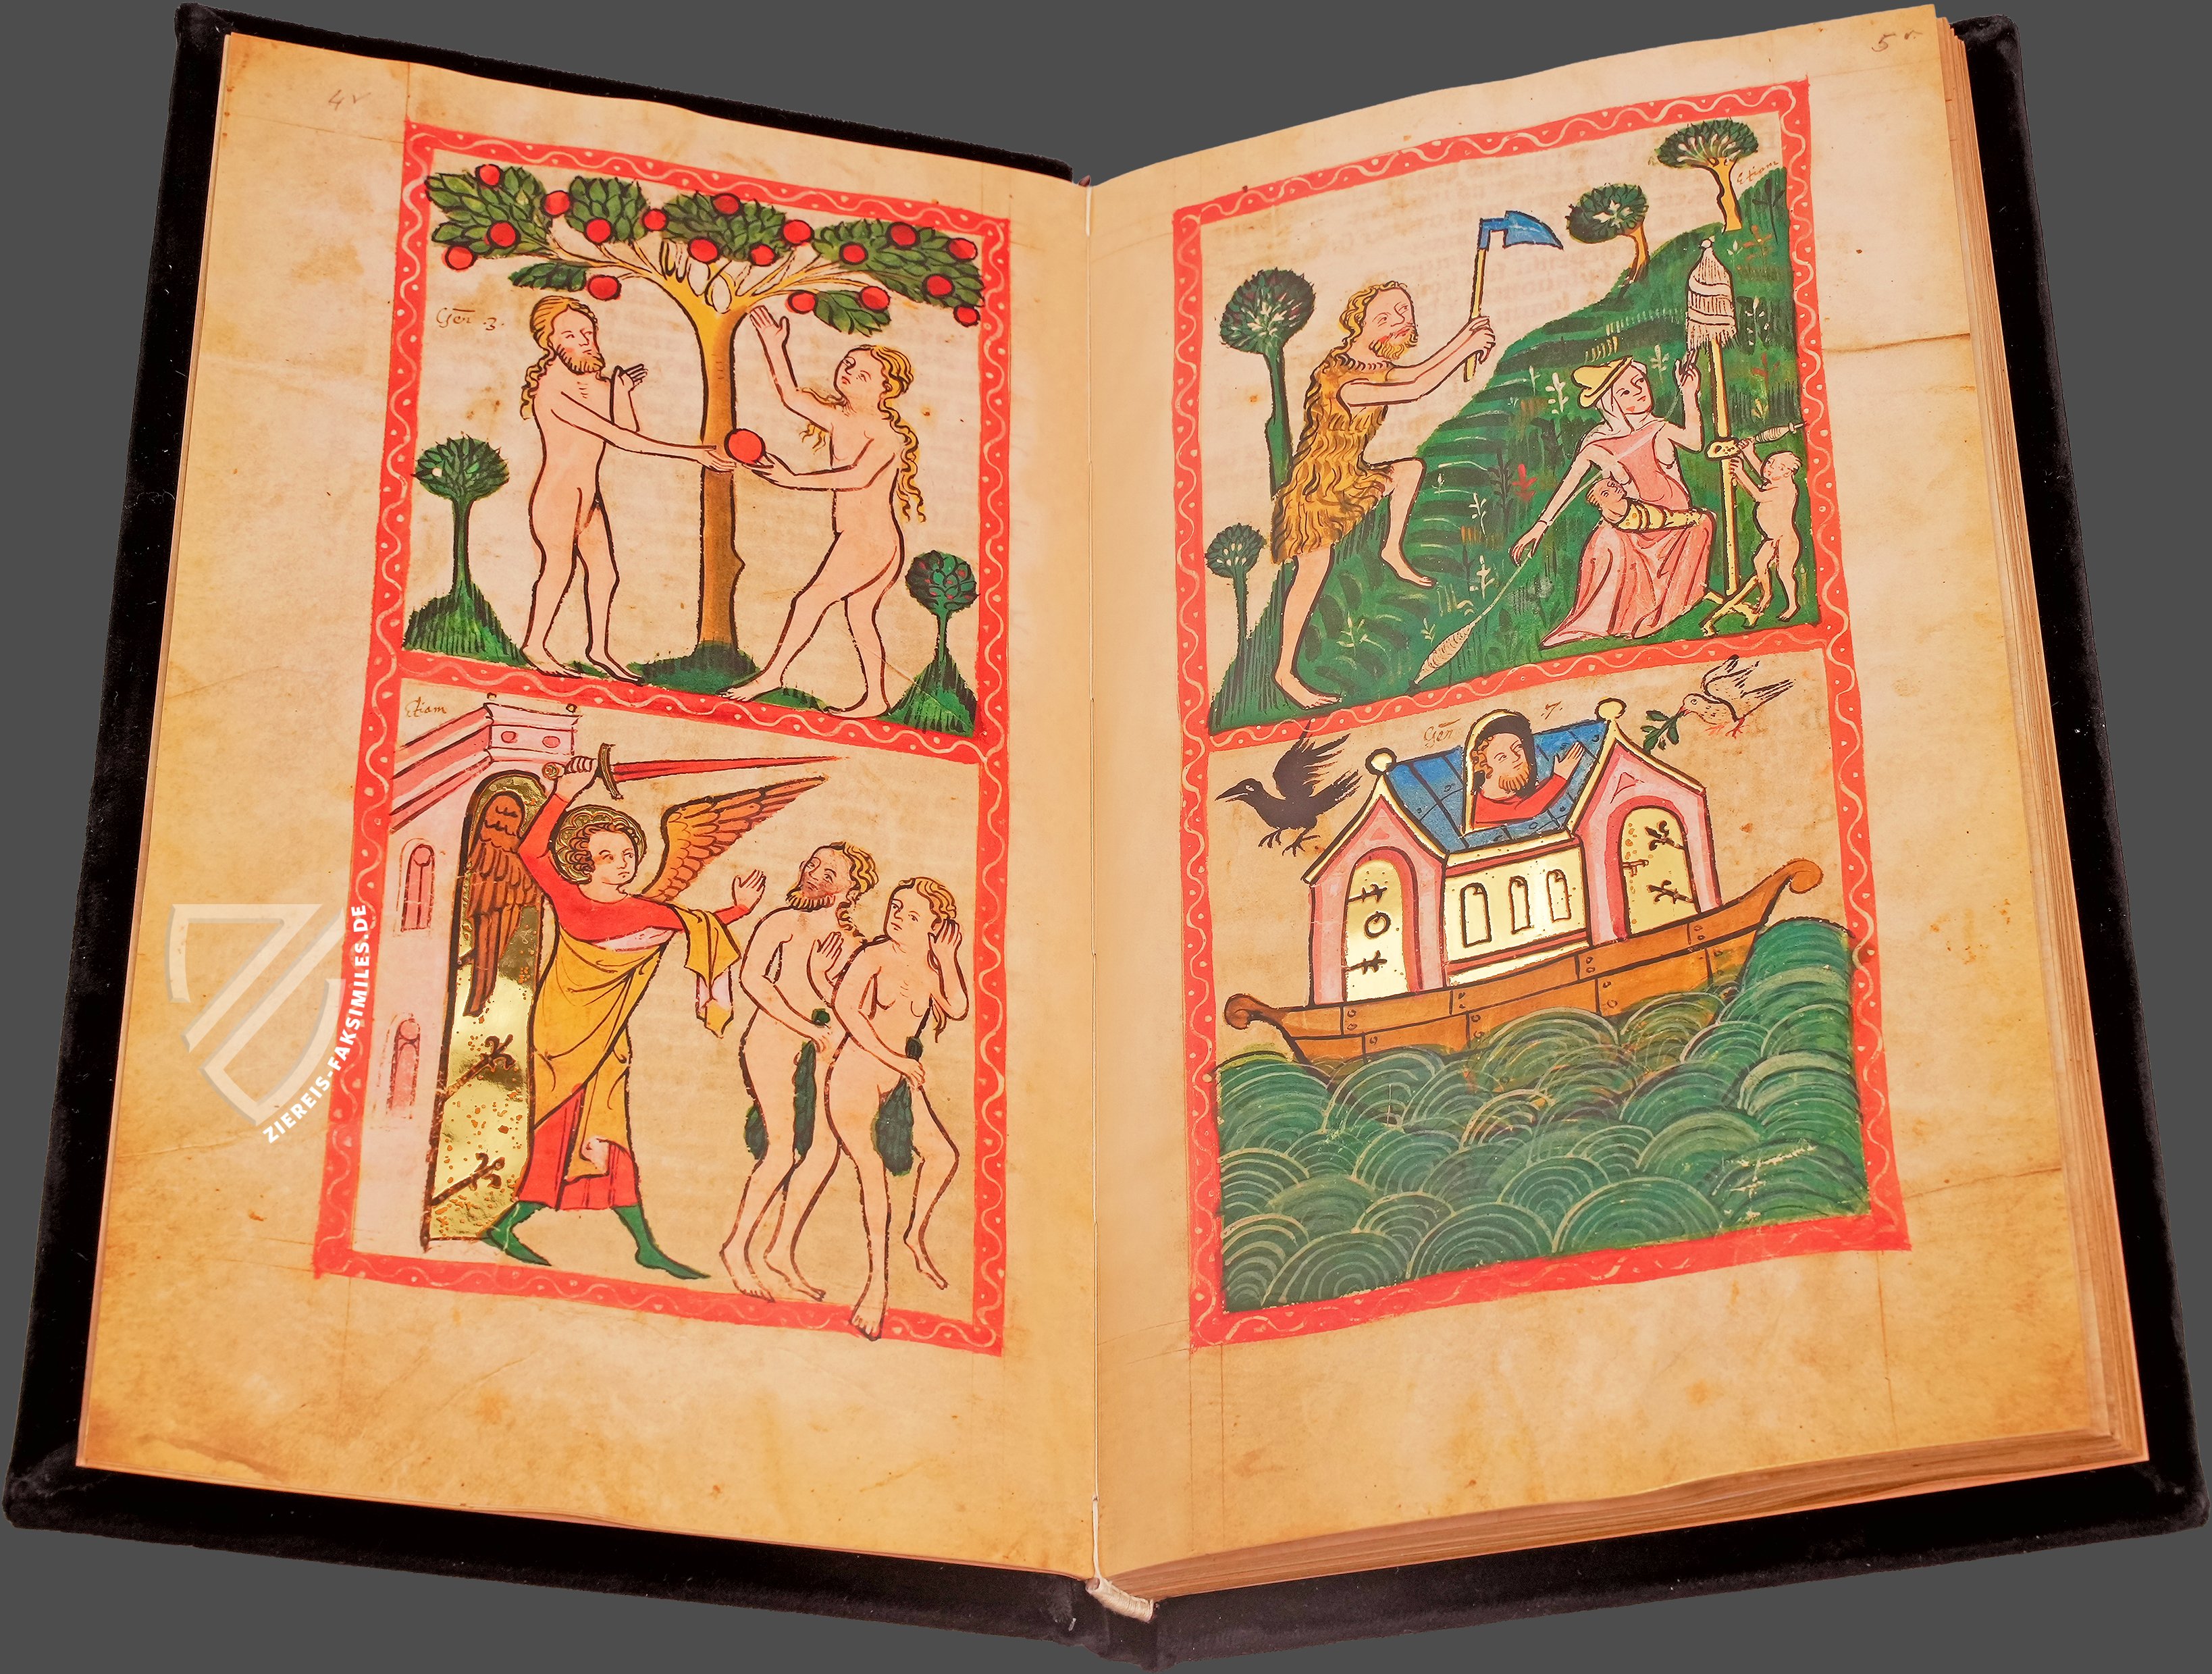 4v
Gen̄ 3.
Etiam
ZIEREIS-FAKSIMILES.DE
5r
Etiam
Gen̄ 7.